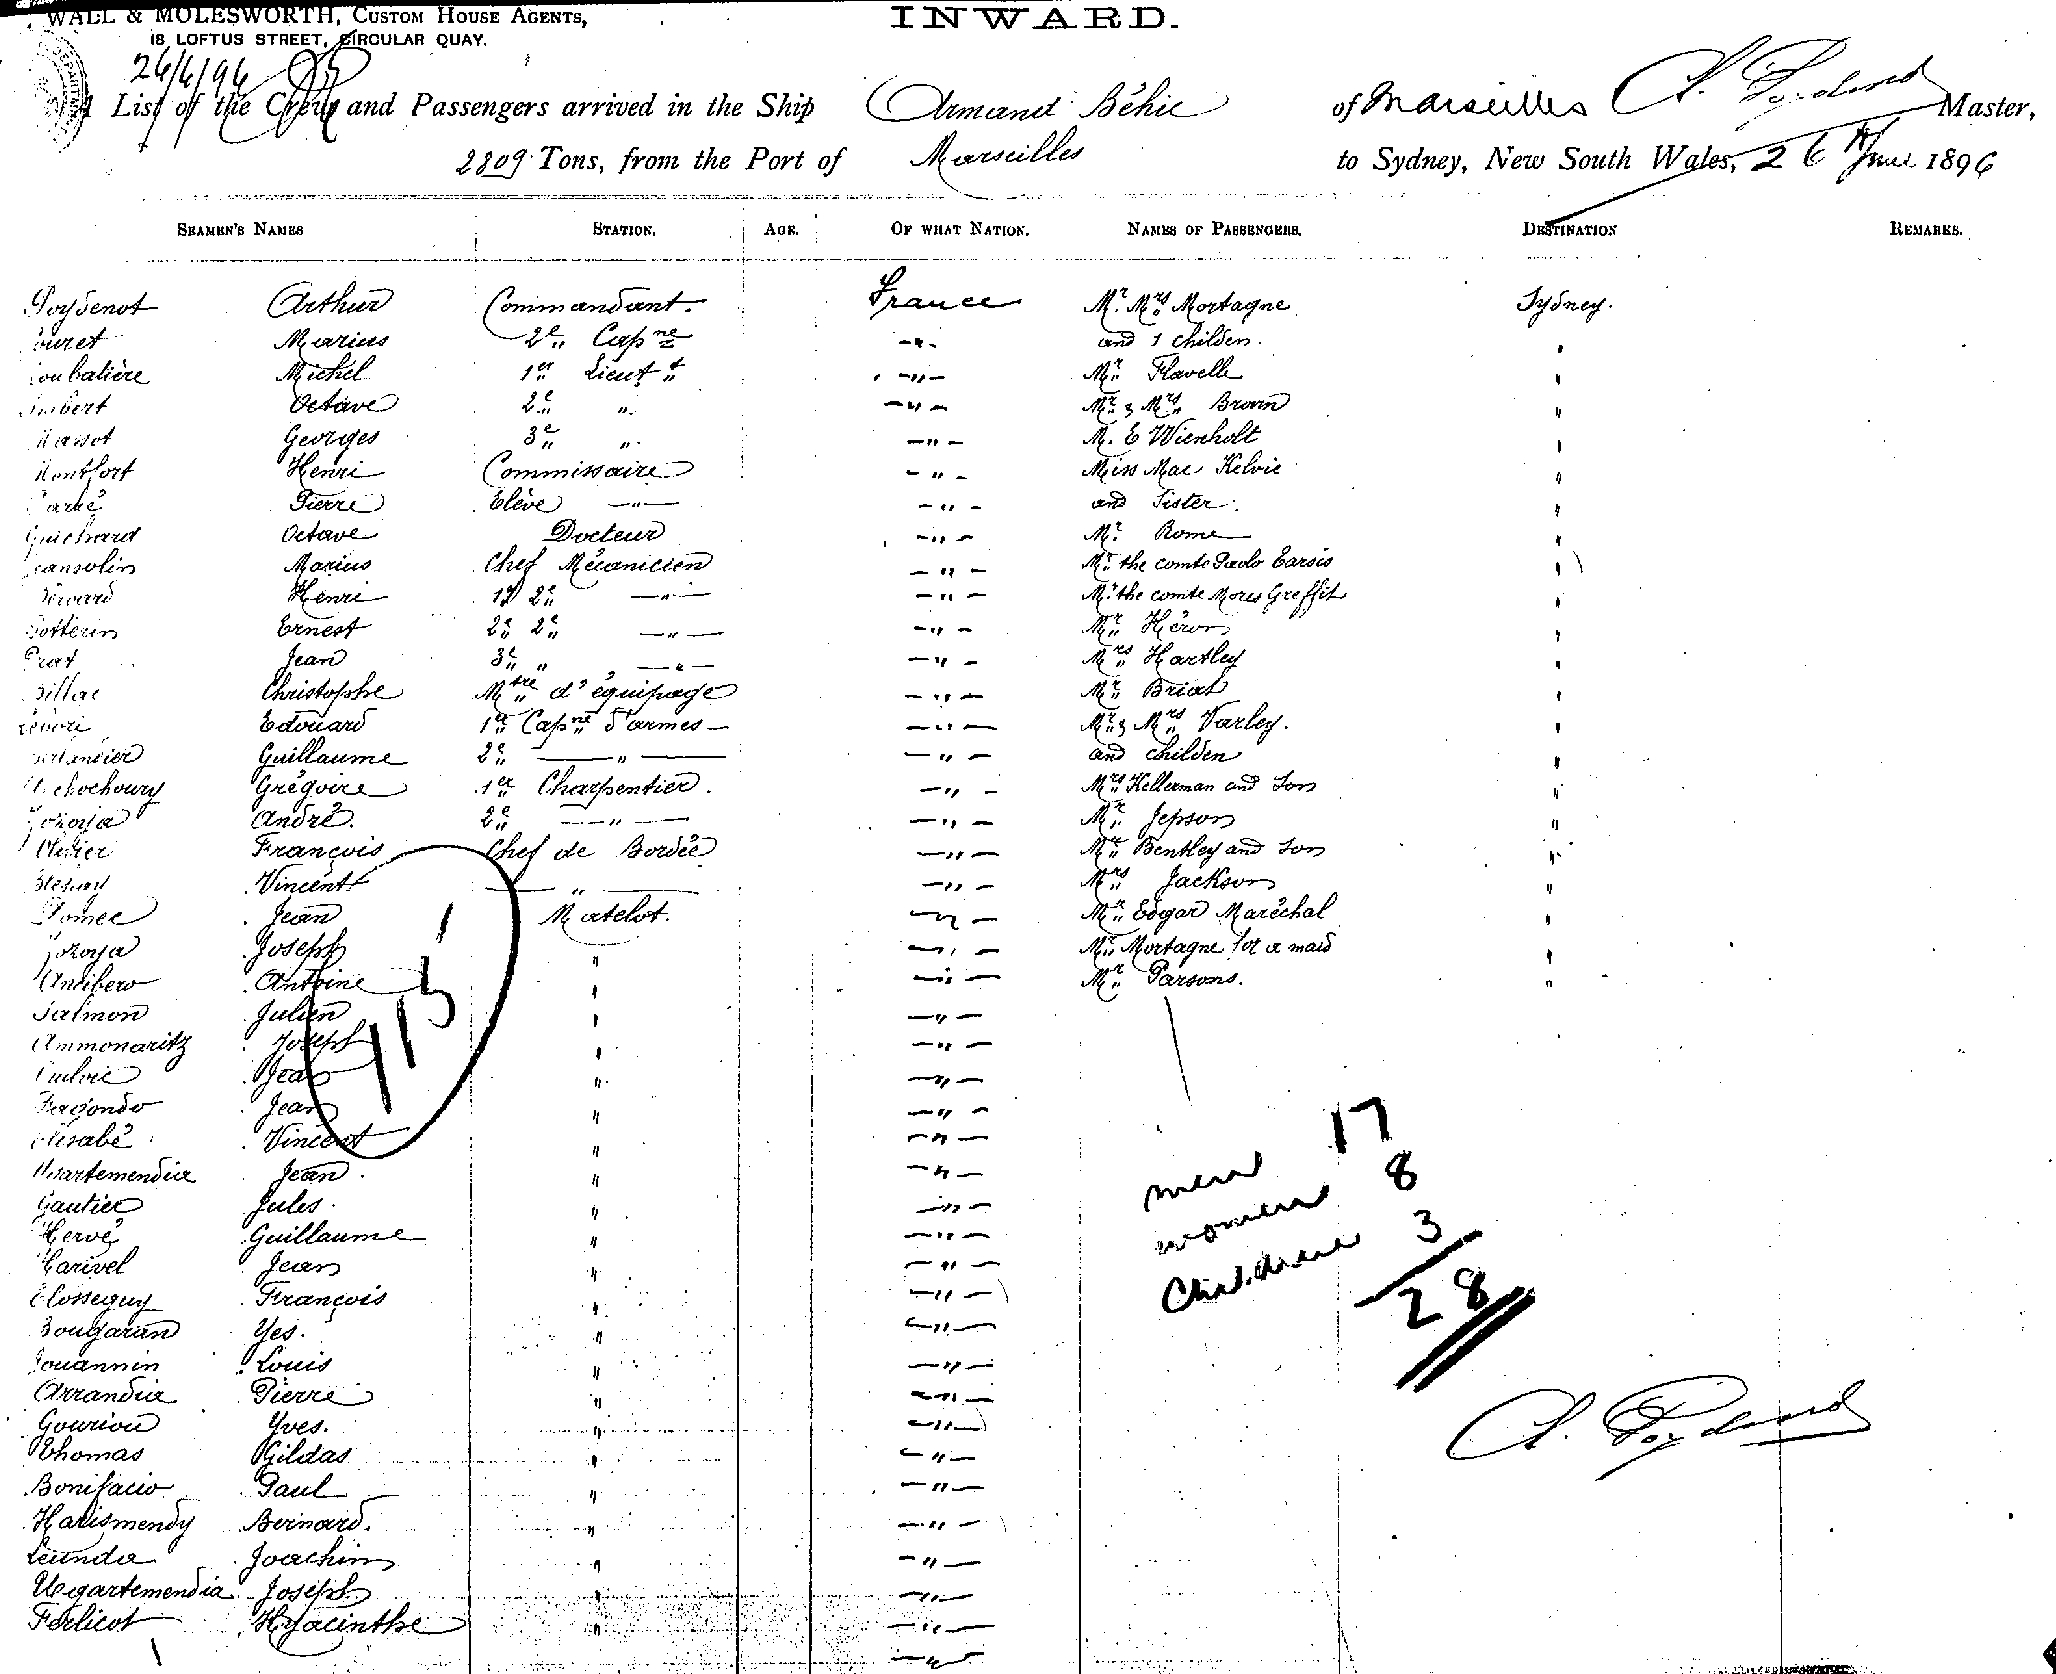 WALL & MOLESWORTH, CUSTOM HOUSE AGENTS,
18 LOFTUS STREET, CIRCULAR QUAY.
INWARD.
26/6/96
A List of the Crew and Passengers arrived in the Ship Armand Béhic of Marseilles A. Poydenot Master,
2809 Tons, from the Port of Marseilles to Sydney, New South Wales, 26th June 1896
SEAMEN'S NAMES STATION. AGE. OF WHAT NATION. NAMES OF PASSENGERS. DESTINATION REMARKS.
Poydenot Arthur Commandant. France Mr. Mrs Mortagne Sydney.
Marius 2e Capne -"- and 1 childen. "
Michel 1er Lieut t -"- Mr Flavelle "
Imbert Octave 2e " -"- Mr & Mrs Brown "
Massot Georges 3e " -"- M. E Wienholt "
Montfort Henri Commissaire -"- Miss Mac Kelvie "
Pierre Elève -"- -"- and Sister. "
Guichard Octave Docteur -"- Mr. Rome "
Marius Chef Mécanicien -"- Mr the comte Paolo "
Henri 1er 2e -"- -"- Mr the comte "
Ernest 2e 2e -"- -"- Mr Héron "
Prat Jean 3e " -"- -"- Mrs Hartley "
Christophe Mtre d'équipage -"- Mr Briat "
Edouard 1er Capne d'armes -"- Mr & Mrs Varley. "
Guillaume 2e -"- -"- and childen "
Grégoire 1er Charpentier. -"- Mrs Kellerman and Son "
André. 2e -"- -"- Mr Jepson "
François Chef de Bordée -"- Mr Bentley and Son "
Vincent -"- -"- Mrs Jackson "
Domec Jean Matelot. -"- Mr Edgar Maréchal "
Joseph " -"- Mr Mortagne for a maid "
Antoine " -"- Mr Parsons. "
Salmon Julien " -"-
Ammonaritz Joseph " -"-
Jean " -"-
Jean " -"-
Vincent " -"-
Jean. " -"-
Gautier Jules. " -"-
Hervé Guillaume " -"-
Harivel Jean " -"-
Elosseguy François " -"-
Bougaran Yes. " -"-
Jouannin Louis " -"-
Arrandia Pierre " -"-
Gouriou Yves. " -"-
Thomas Gildas " -"-
Bonifacio Paul " -"-
Harismendy Bernard. " -"-
Joachim " -"-
Ugartemendia Joseph " -"-
Ferlicot Hyacinthe " -"-
-"-
115
men 17
women 8
Children 3
28
A. Poydenot